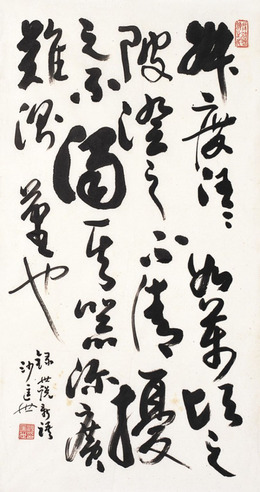 叔度汪〻如萬頃之
陂澄之不清擾
之不濁其器深廣
難測量也
錄世說新語
沙匡世